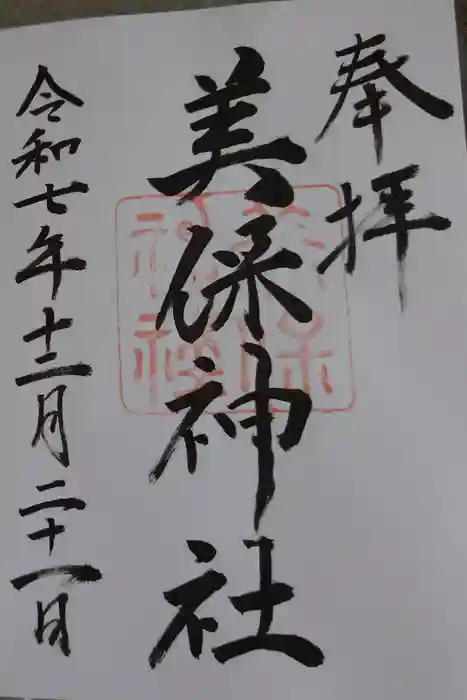 奉拝
美保神社
美保
神社
令和七年十二月二十一日